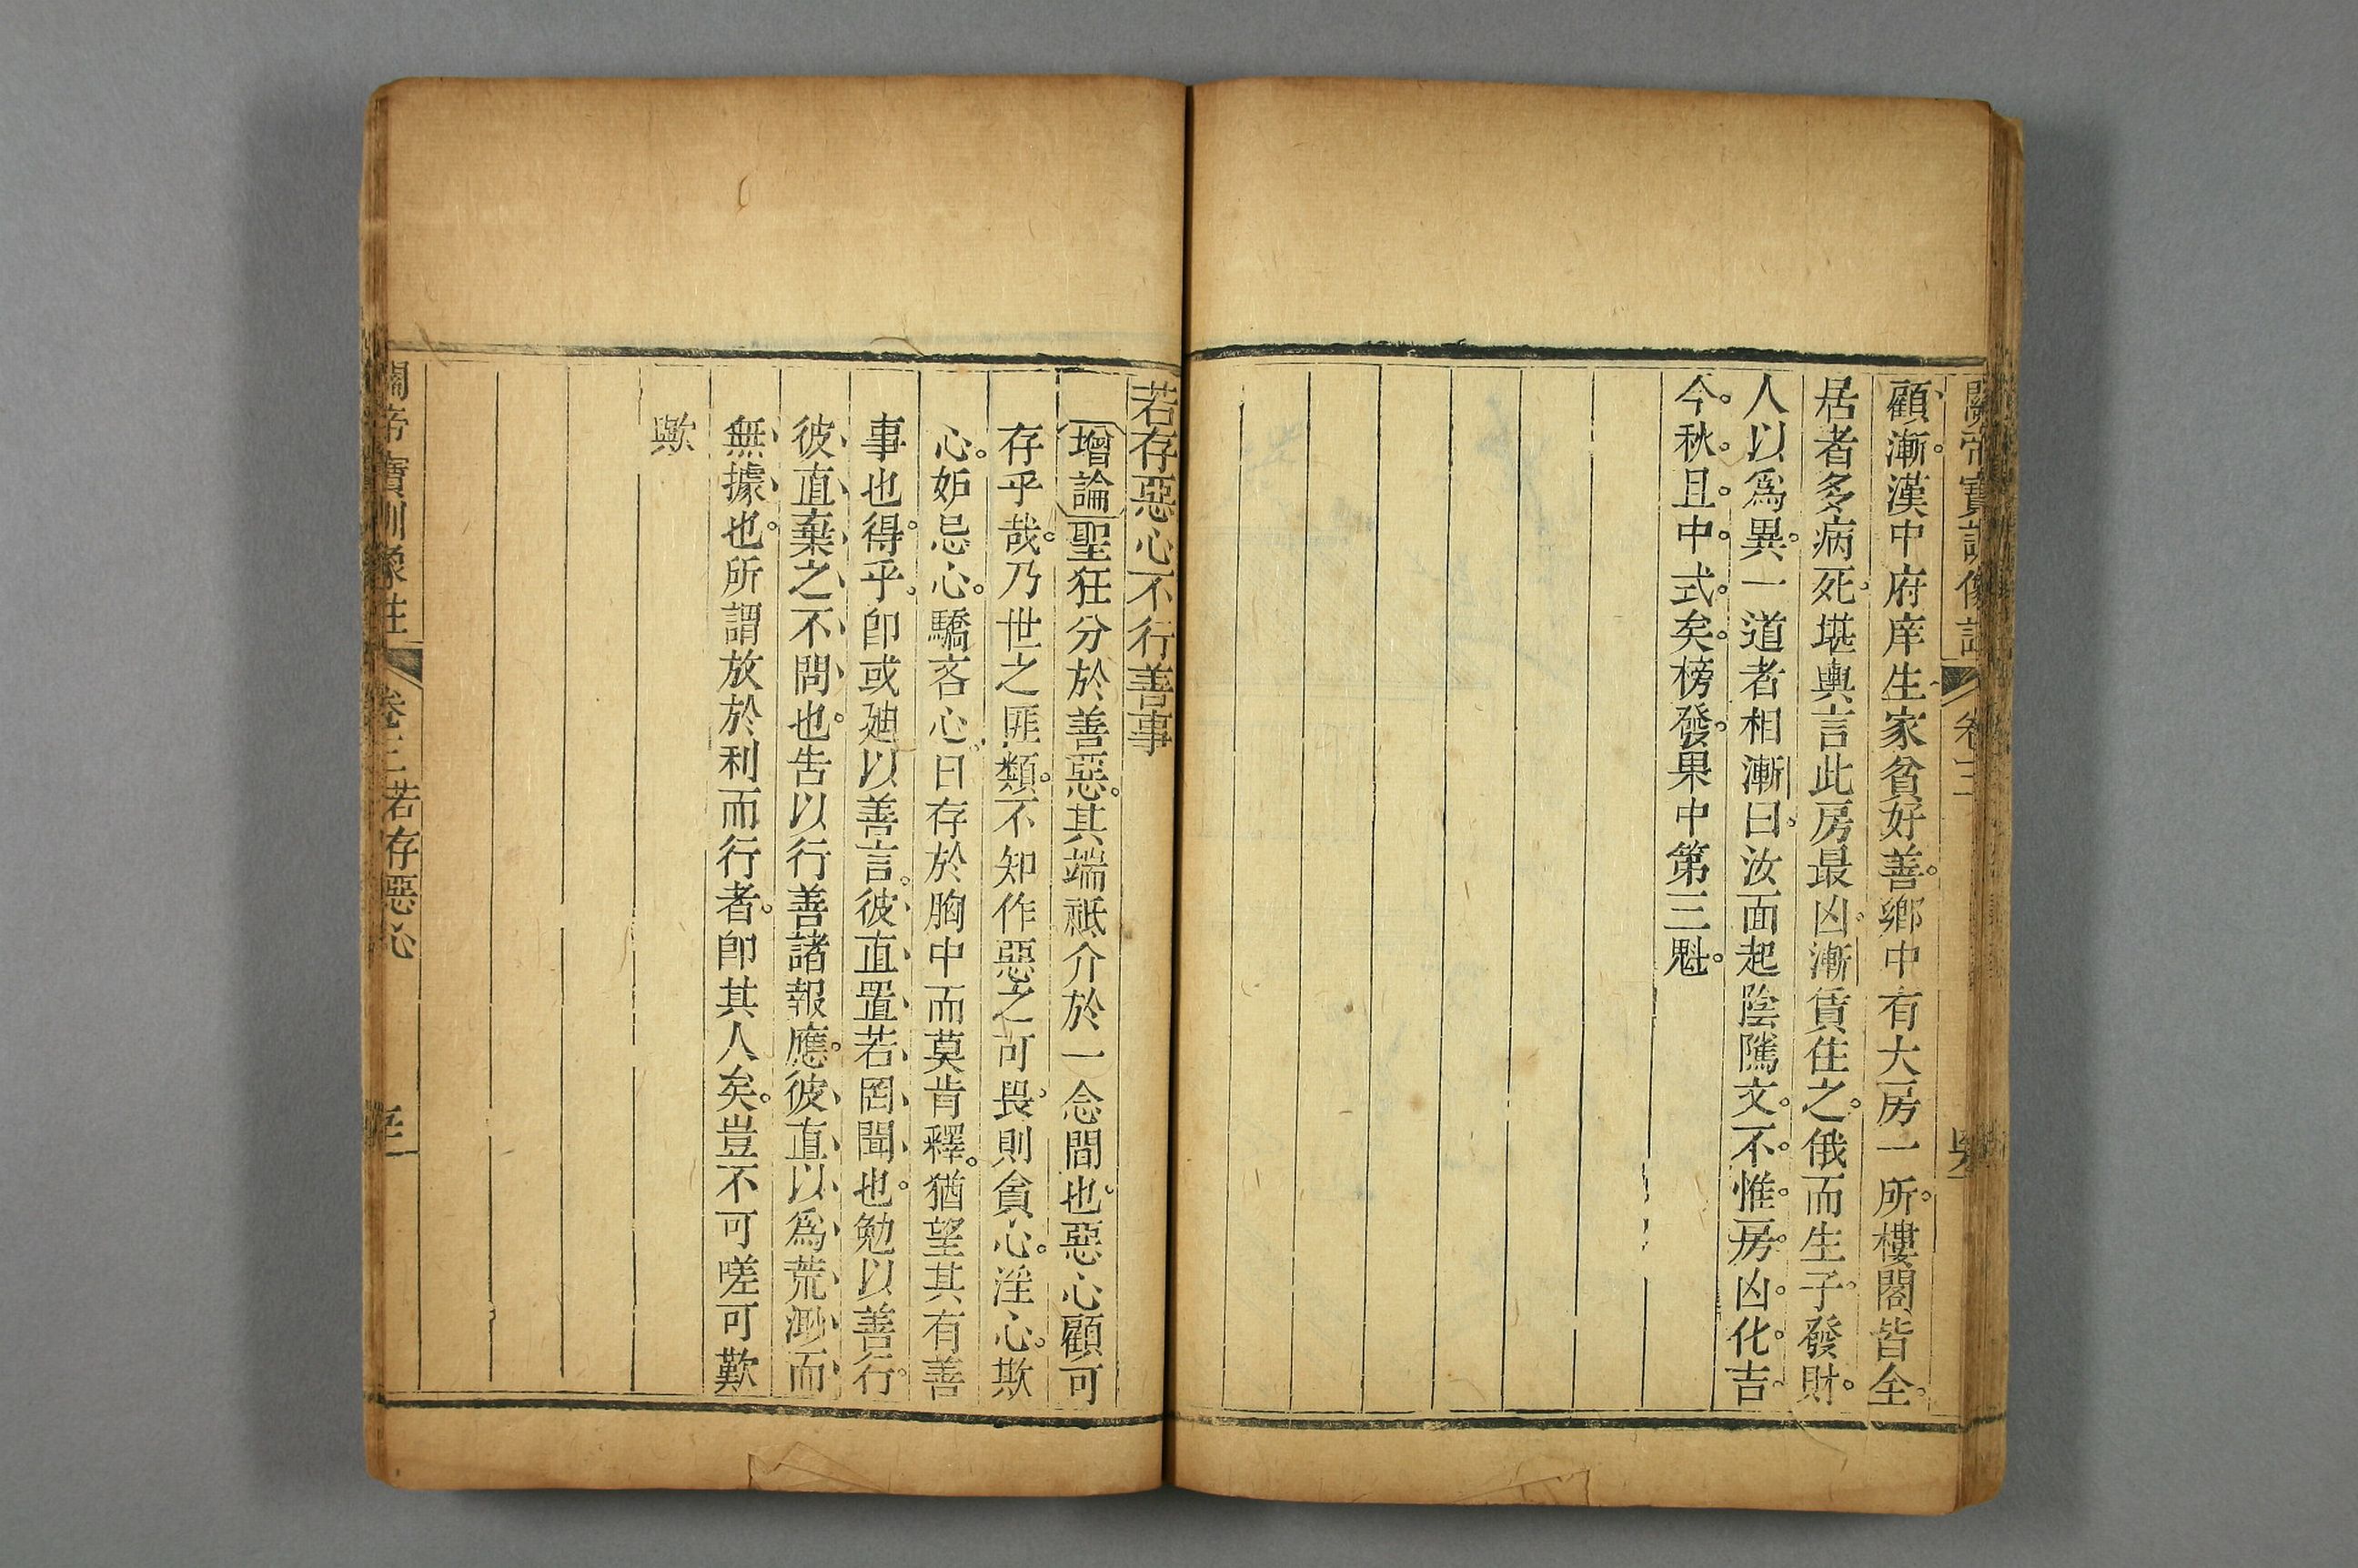 關帝寶訓像註 卷三
顧漸。漢中府庠生、家貧好善。鄉中有大房一所。樓閣皆全。
居者多病死。堪輿言此房最凶。漸賃住之。俄而生子。發財。
人以爲異。一道者相漸曰。汝面起陰隲文。不惟房凶化吉。
今秋且中式矣。榜發。果中第三魁。
若存惡心不行善事
增論聖狂分於善惡。其端祗介於一念間也。惡心顧可
存乎哉。乃世之匪類。不知作惡之可畏。則貪心。淫心。欺
心。妒忌心。驕吝心。日存於胸中而莫肯釋。猶望其有善
事也得乎。卽或廸以善言。彼直置若罔聞也。勉以善行。
彼直棄之不問也。告以行善諸報應。彼直以爲荒渺而
無據也。所謂放於利而行者。卽其人矣。豈不可嗟可歎
歟
關帝寶訓像註 卷三若存惡心